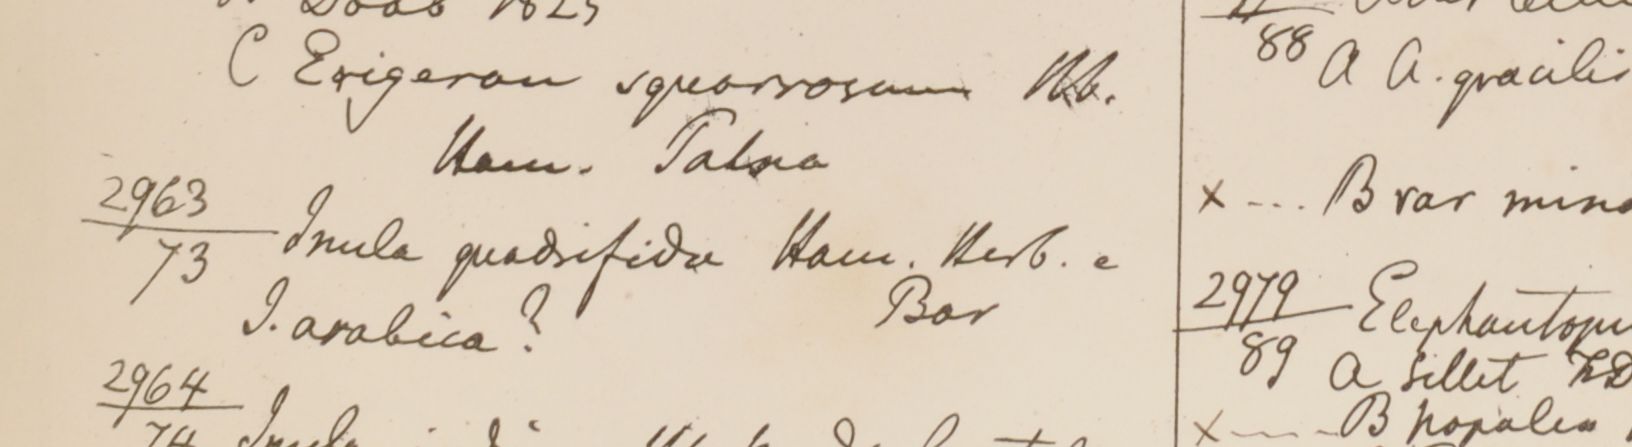 Doab 1825
C Erigeron squarrosum Hb.
Ham. Patna
2963
73 Inula quadrifida Ham. Herb. e
Bar
I. arabica?
2964
74 Inula
88 A A. gracilis
x --- B var mino
2979
89 Elephantopu
A Sillet FD
x ---- B Nopalea